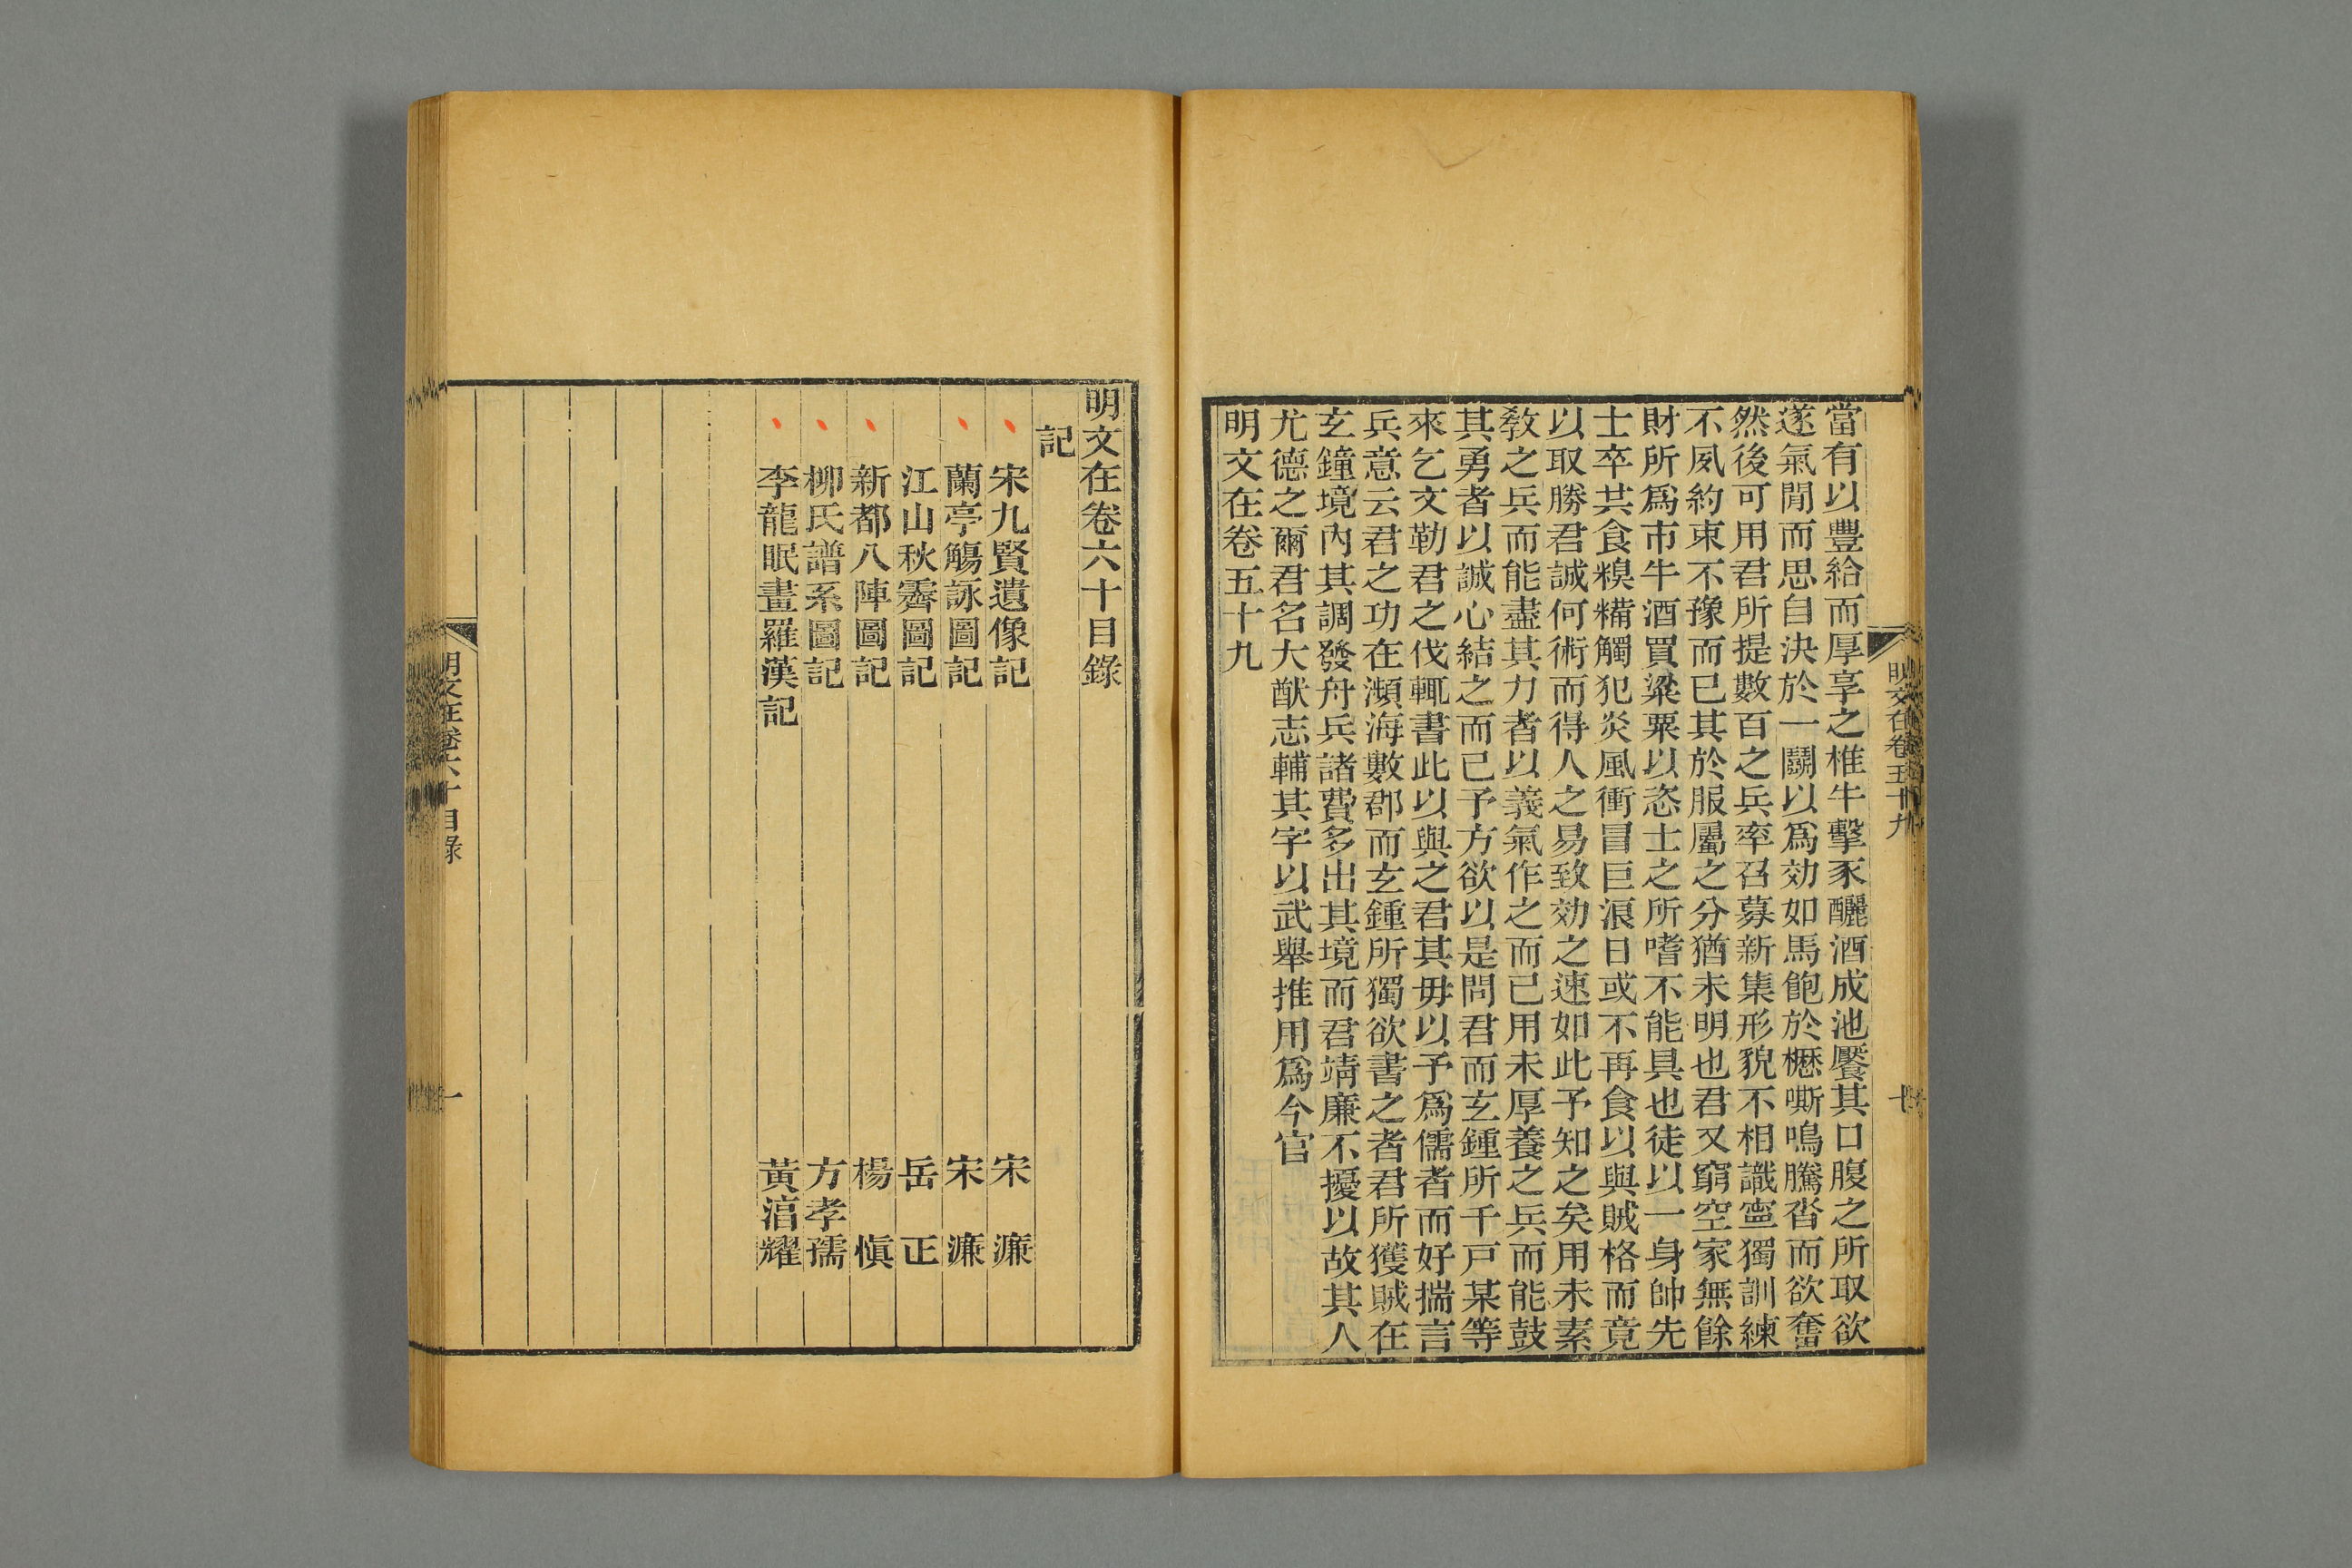 當有以豐給而厚享之椎牛擊豕釃酒成池饜其口腹之所取欲
遂氣閒而思自決於一鬭以爲効如馬飽於櫪嘶鳴騰沓而欲奮
然後可用君所提數百之兵率召募新集形貌不相識寧獨訓練
不夙約束不豫而已其於服屬之分猶未明也君又窮空家無餘
財所爲市牛酒買粱粟以恣士之所嗜不能具也徒以一身帥先
士卒共食糗糒觸犯炎風衝冒巨浪日或不再食以與賊格而竟
以取勝君誠何術而得人之易致効之速如此予知之矣用未素
敎之兵而能盡其力者以義氣作之而已用未厚養之兵而能鼓
其勇者以誠心結之而已予方欲以是問君而玄鍾所千戸某等
來乞文勒君之伐輒書此以與之君其毋以予爲儒者而好揣言
兵意云君之功在瀕海數郡而玄鍾所獨欲書之者君所獲賊在
玄鐘境內其調發舟兵諸費多出其境而君靖廉不擾以故其人
尤德之爾君名大猷志輔其字以武舉推用爲今官
明文在卷五十九
明文在卷五十九
十
明文在卷六十目錄
記
宋九賢遺像記 宋濂
蘭亭觴詠圖記 宋濂
江山秋霽圖記 岳正
新都八陣圖記 楊愼
柳氏譜系圖記 方孝孺
李龍眠畫羅漢記 黃湻耀
明文在卷六十目錄
一